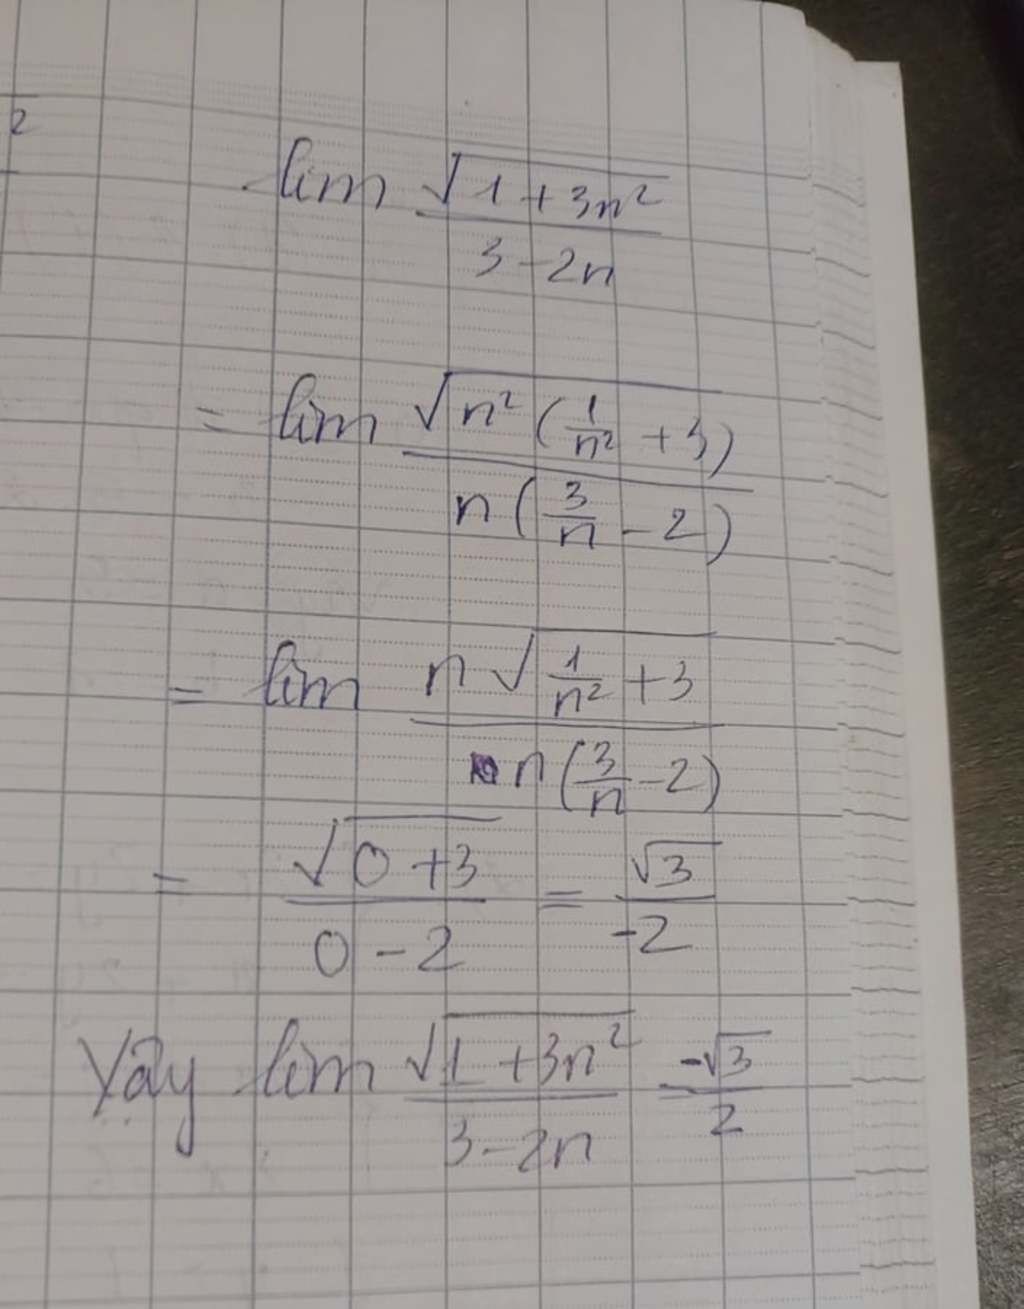 2
lim √(1 + 3n²) / (3 - 2n)
= lim √(n² (1/n² + 3)) / (n (3/n - 2))
= lim n √(1/n² + 3) / (n (3/n - 2))
= √(0 + 3) / (0 - 2) = √3 / -2
Vậy lim √(1 + 3n²) / (3 - 2n) = -√3 / 2